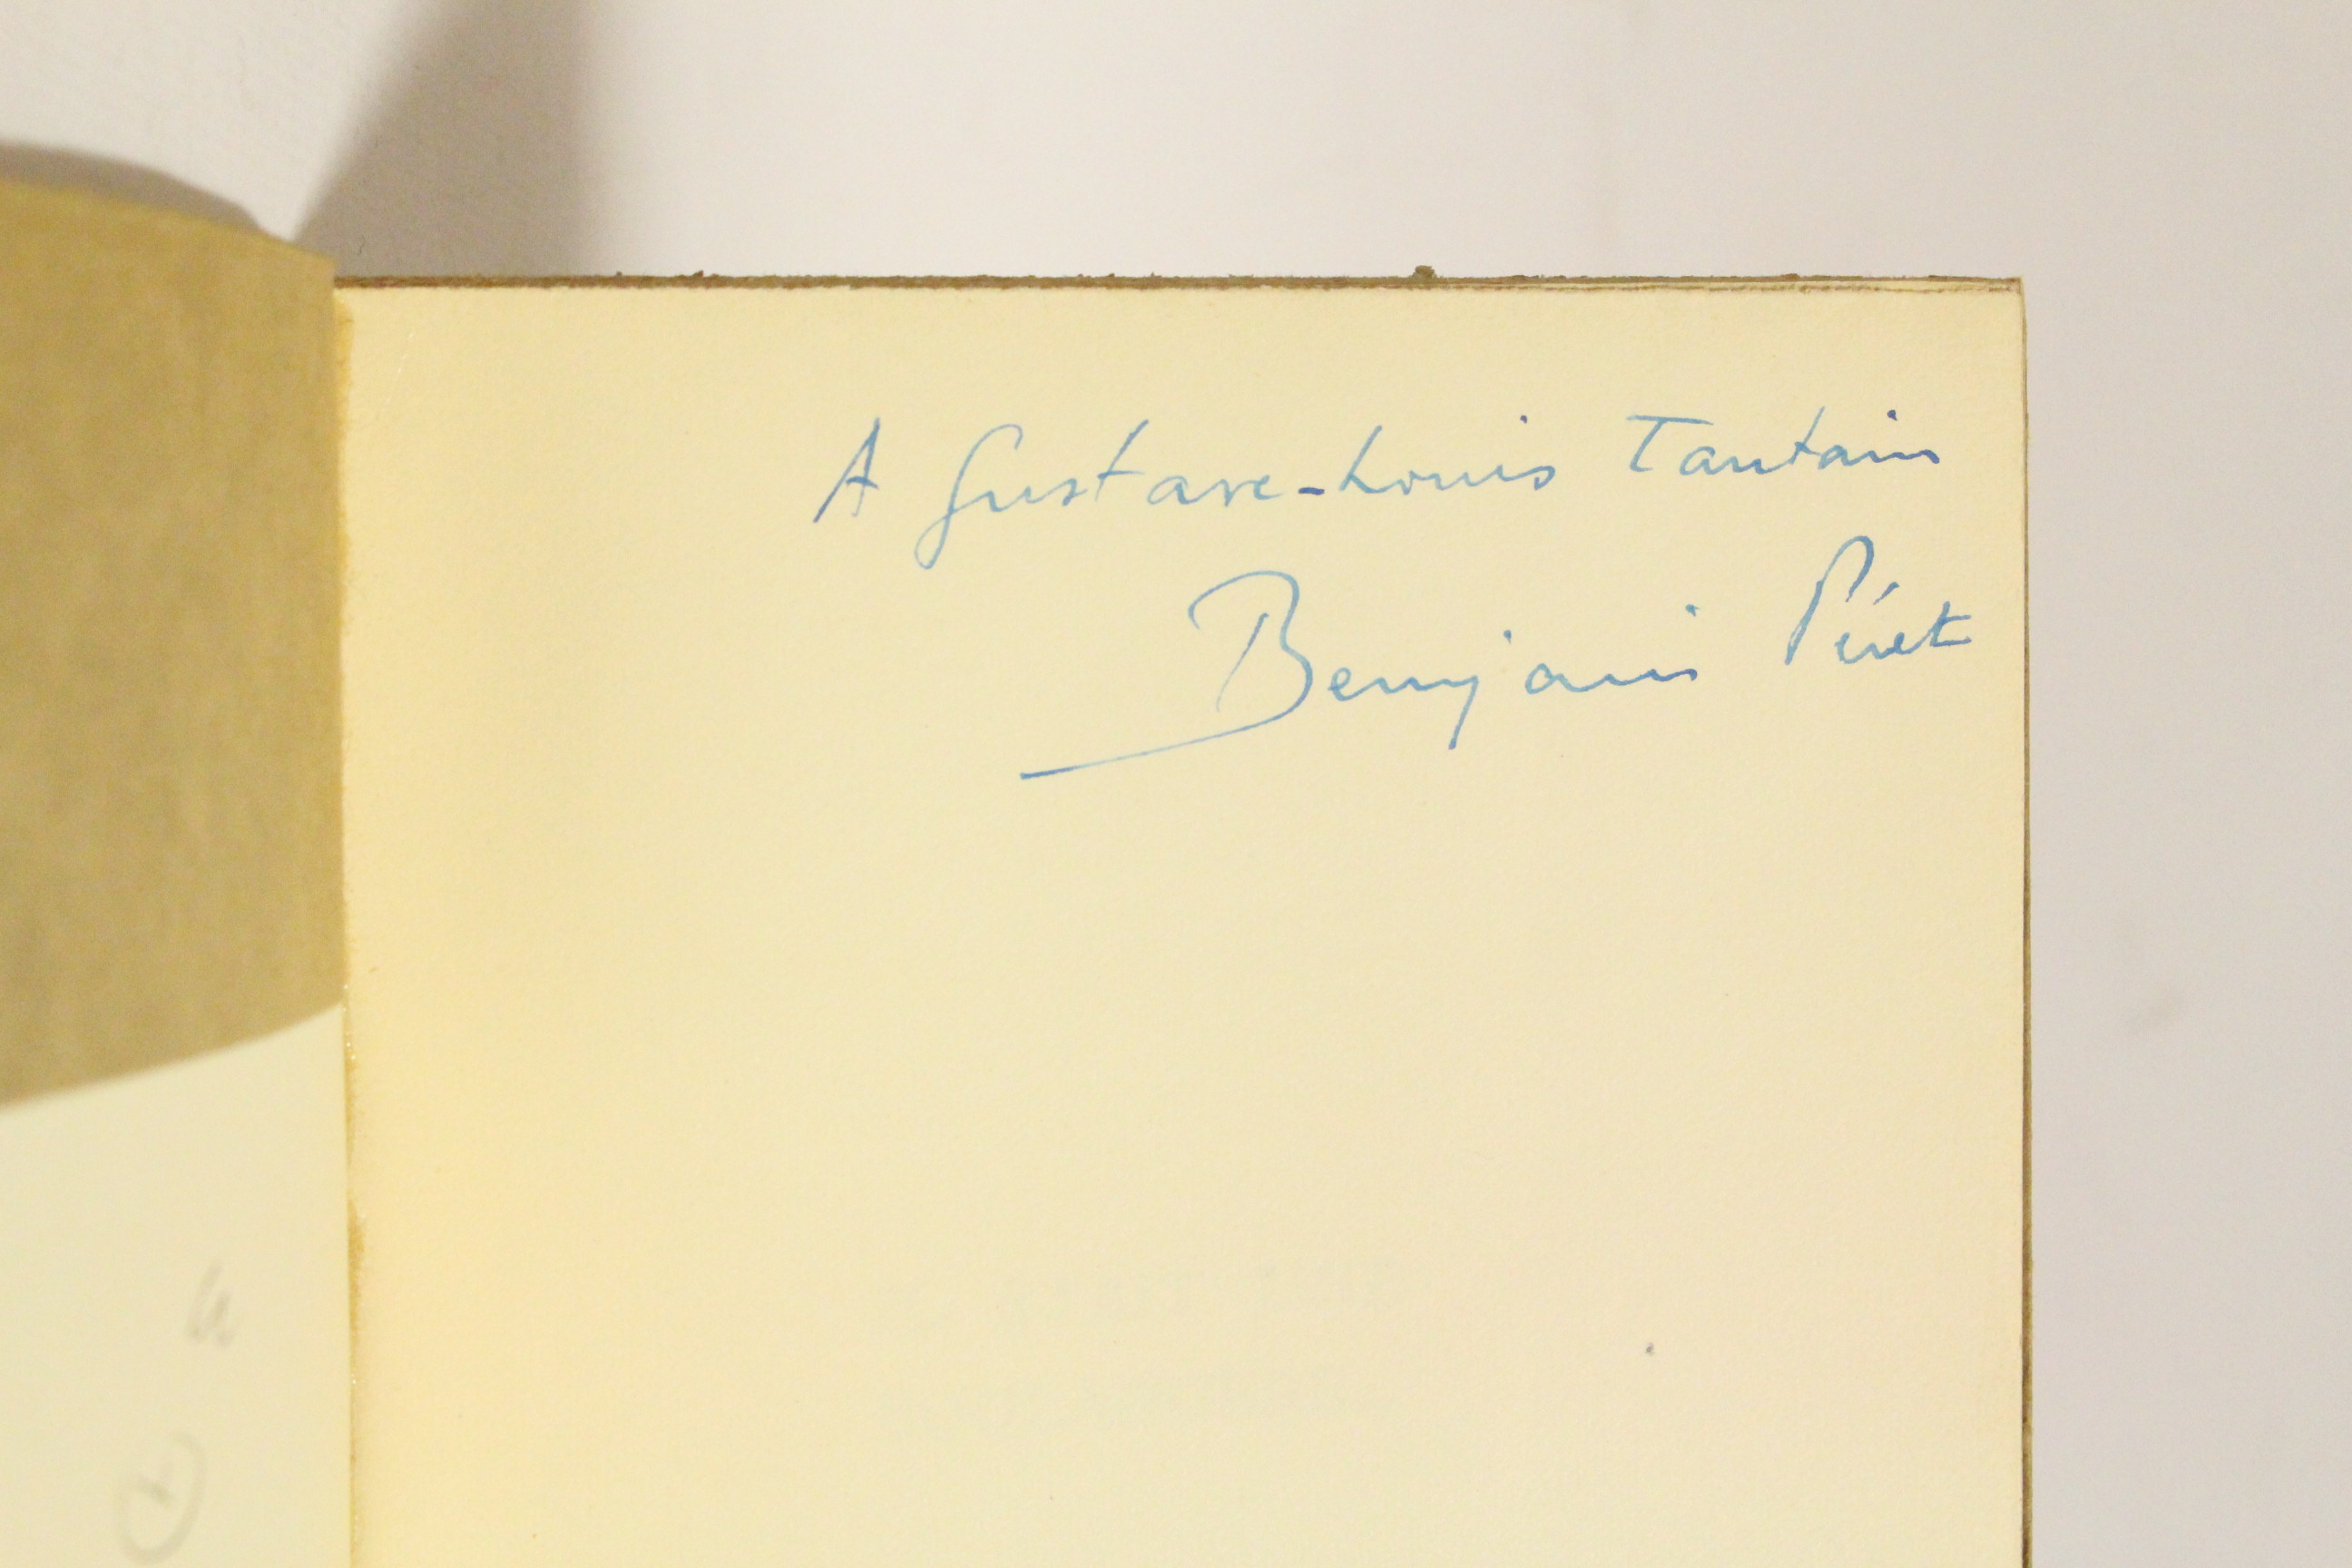 A Gustave-Louis Tautain
Benjamin Péret